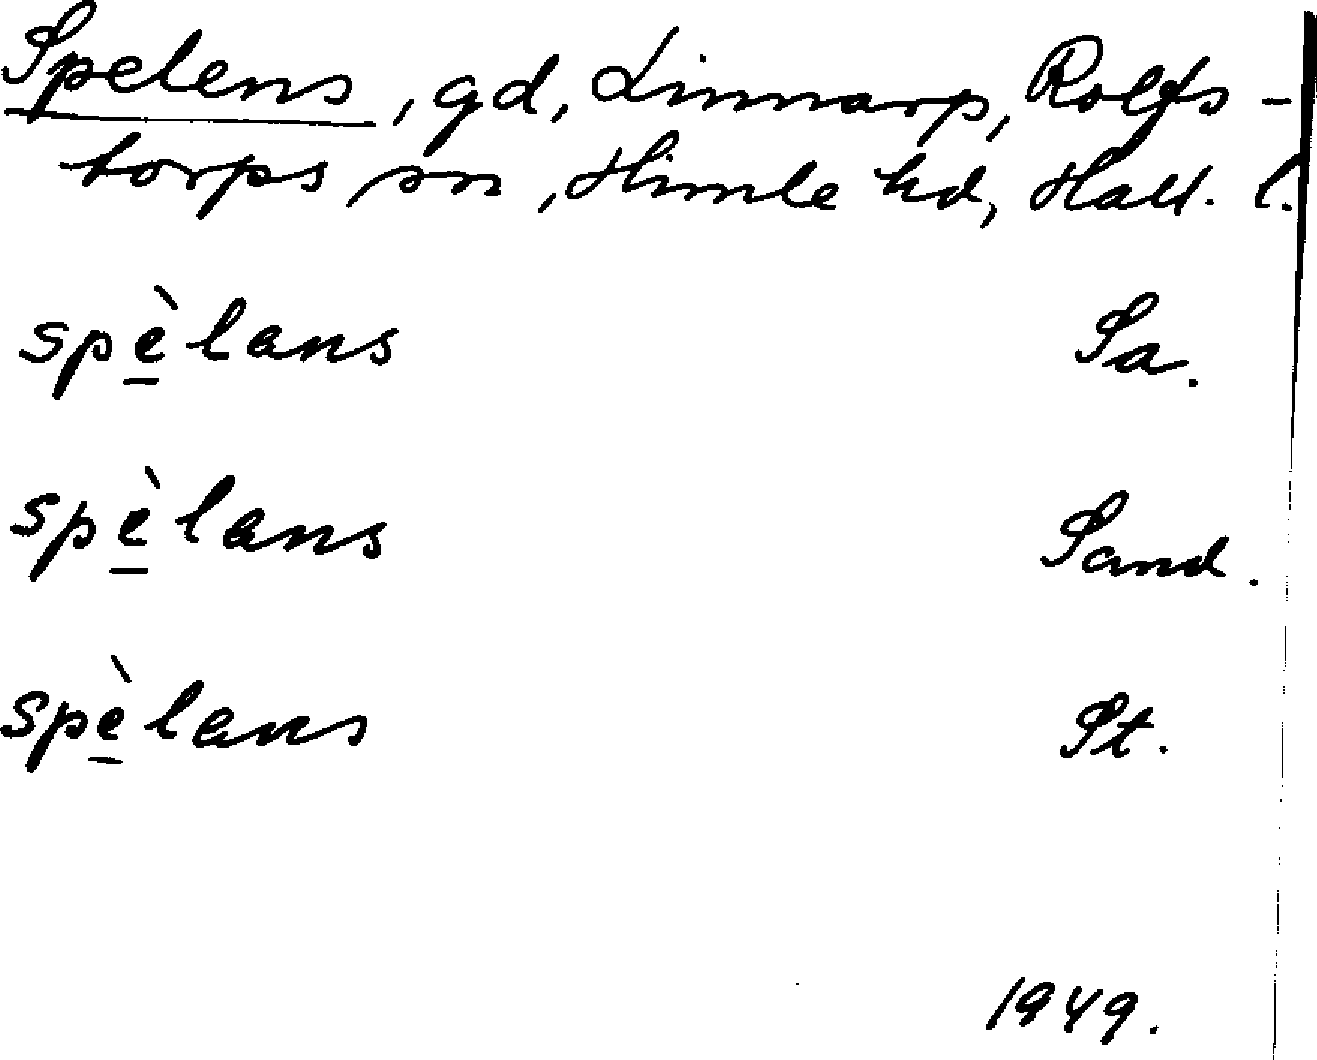 Spelens, gd, Linnarp, Rolfs-
torps sn, Himle hd, Hall. l.
spè̲lans Sa.
spè̲lans Sand.
spè̲lans St.
1949.